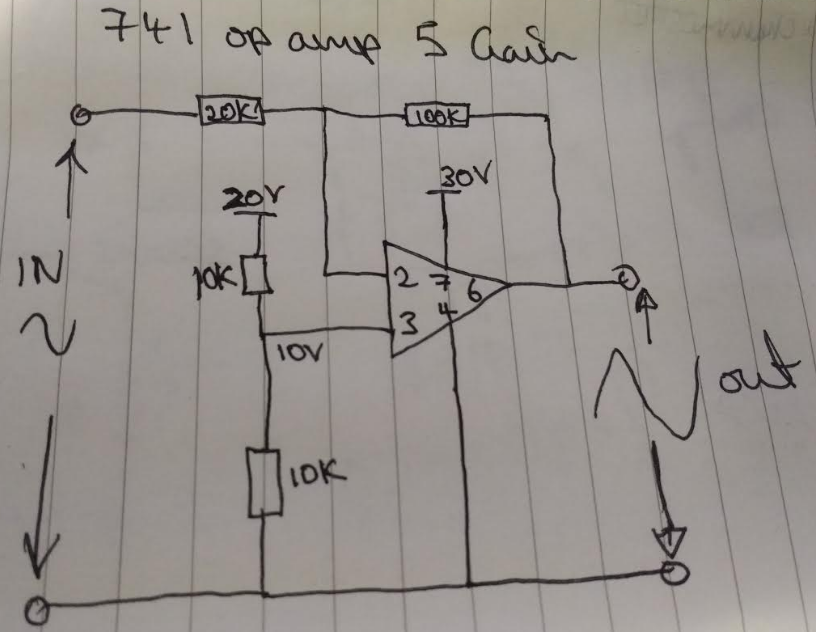 741 op amp 5 Gain
20K
100K
20V
30V
IN
10K
2
7
6
3
4
10V
out
10K